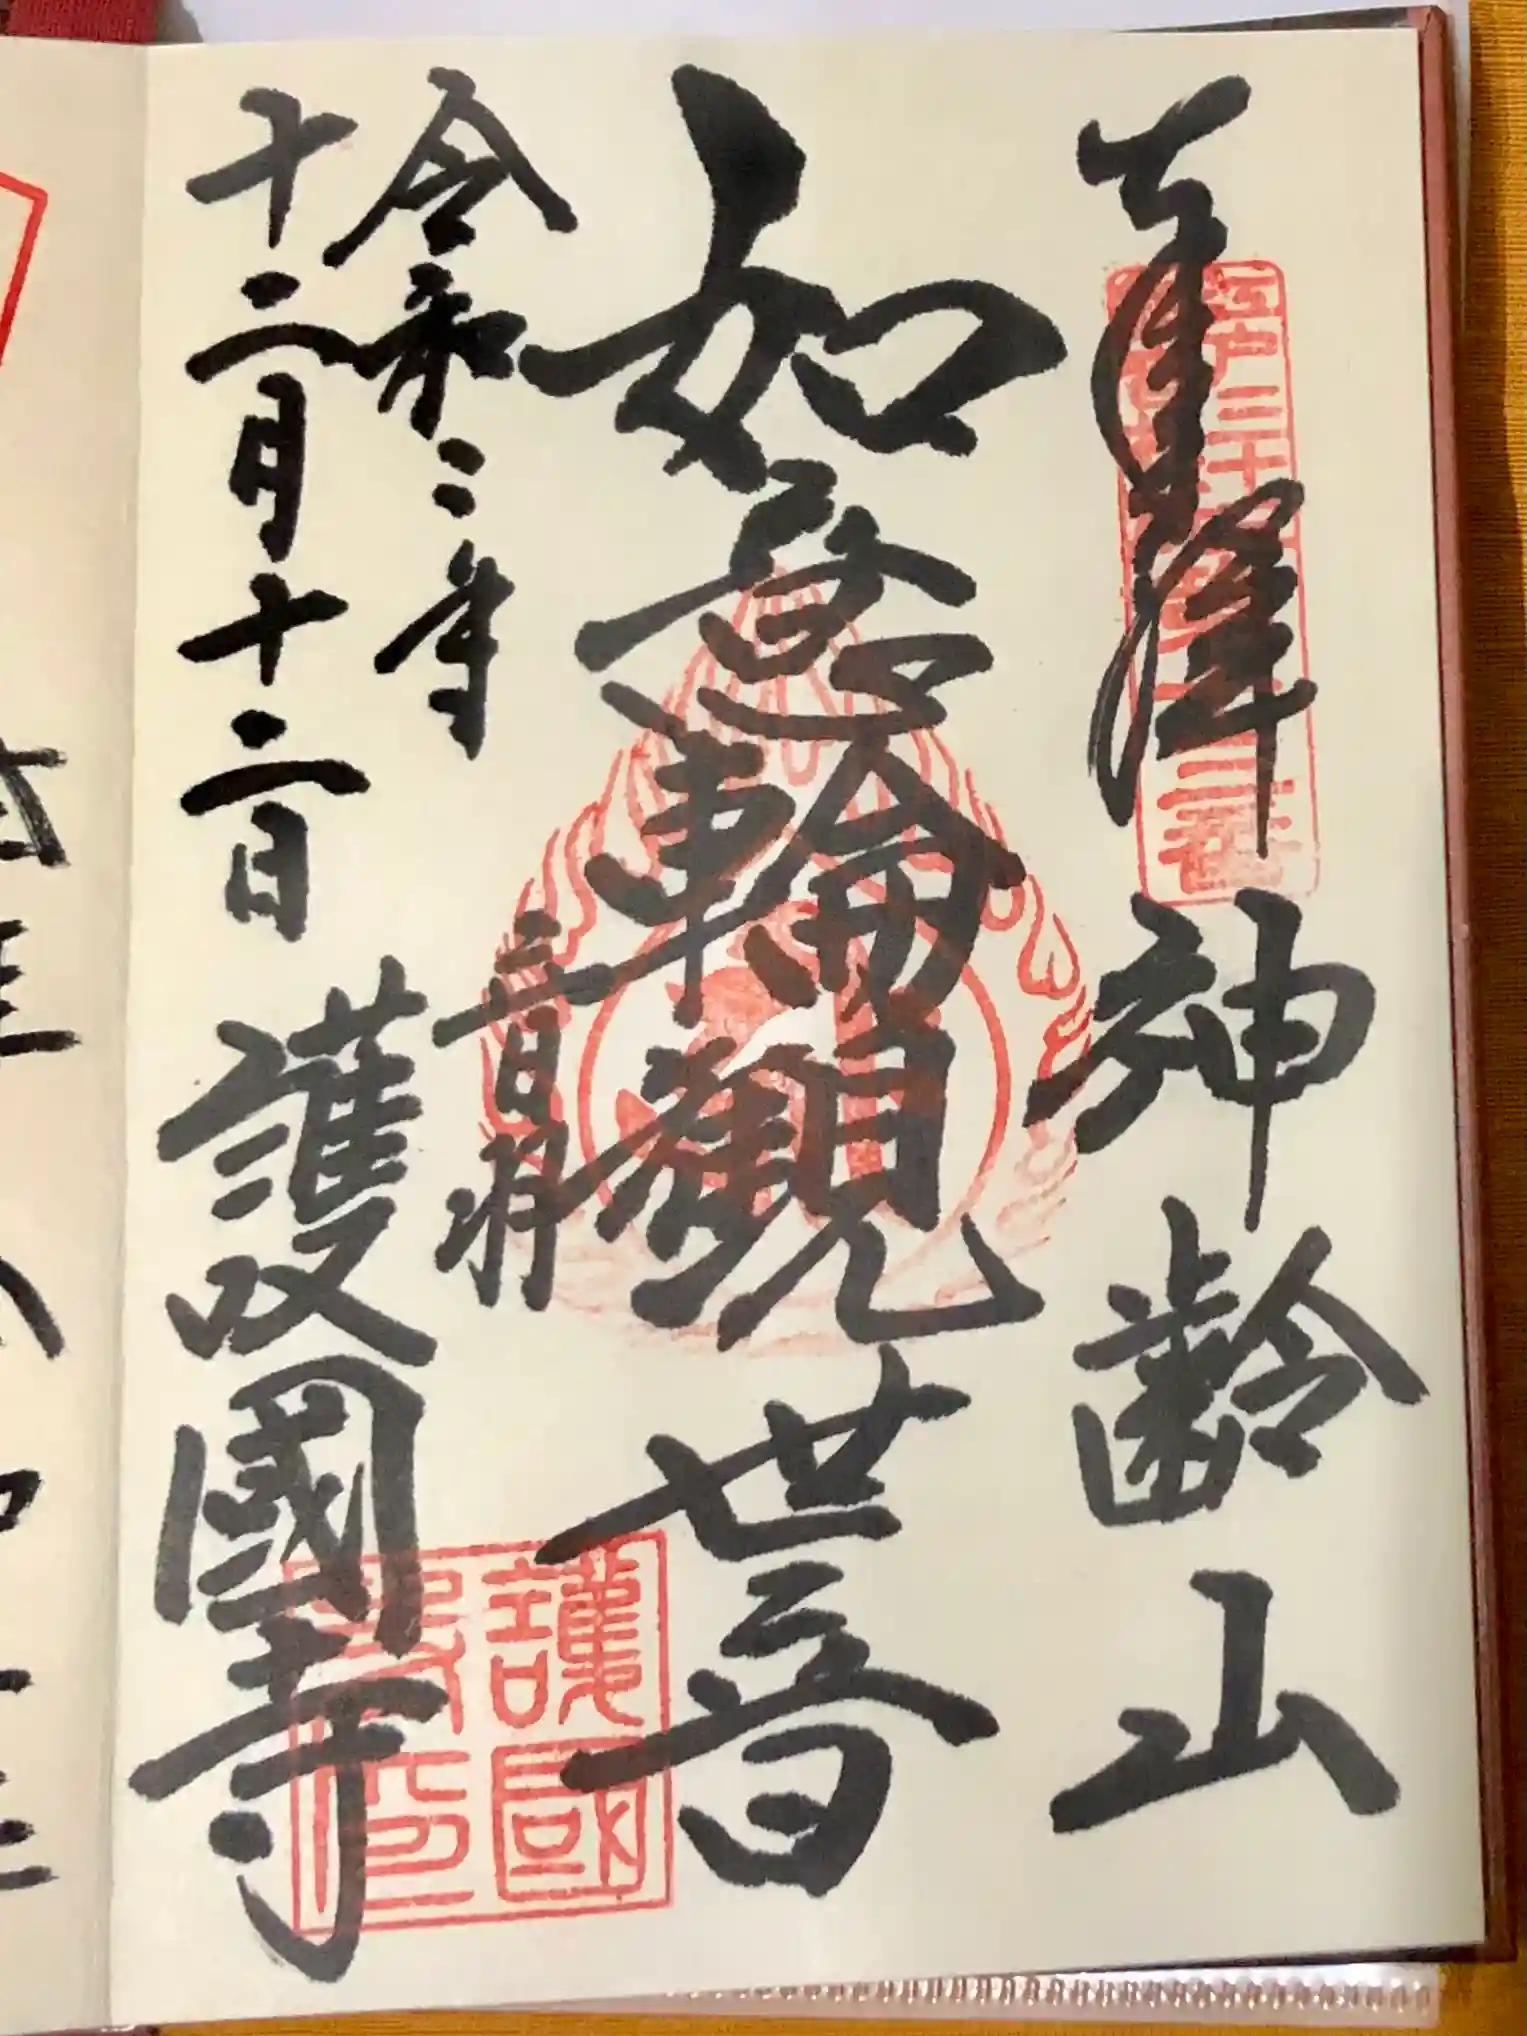 奉拝
神齢山
如意輪観世音
音羽
令和二年
十二月十二日
護國寺
江戸三十
護國